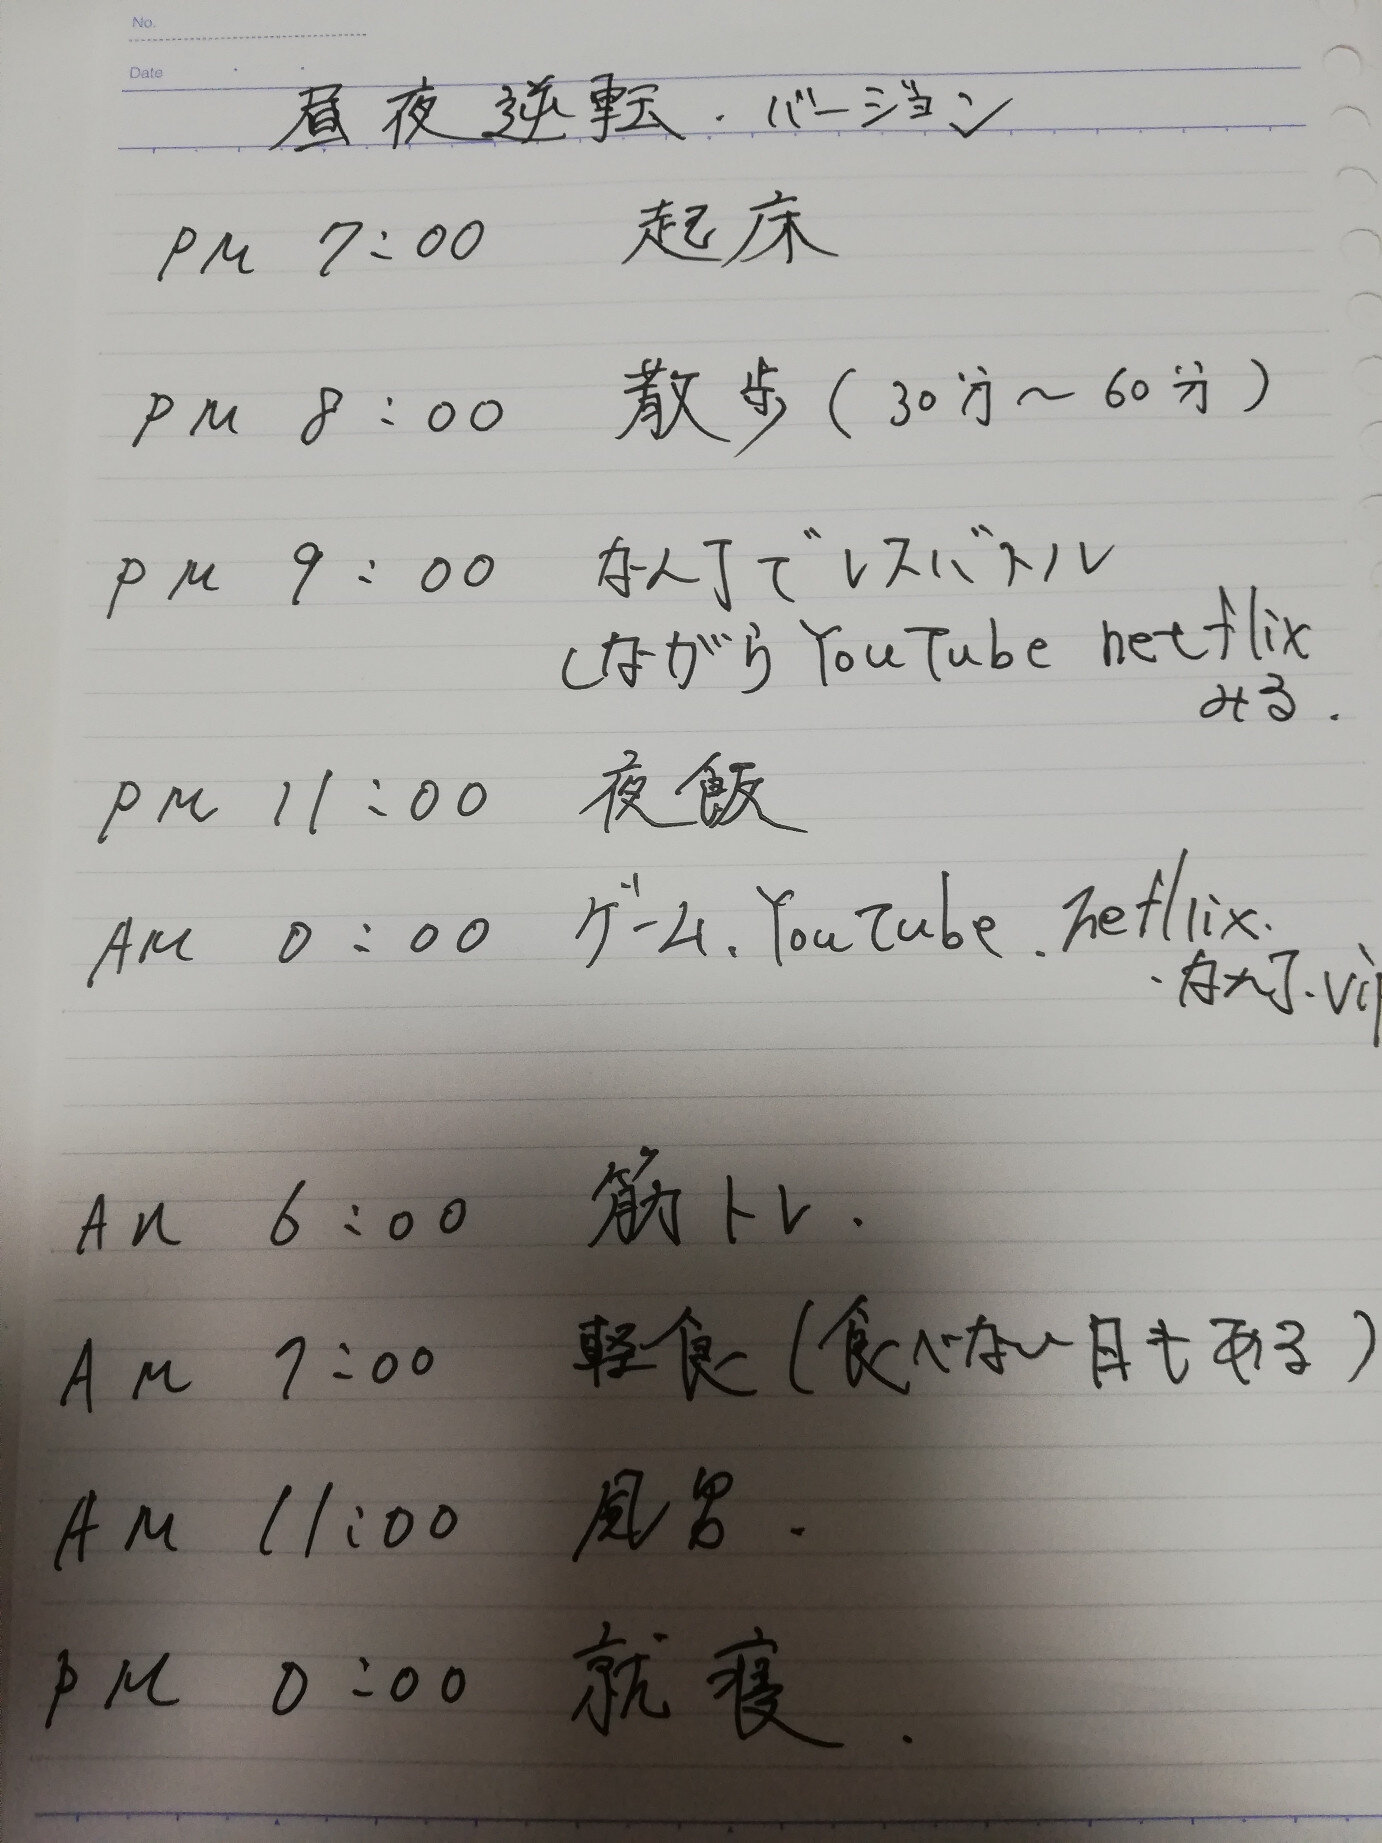 No.
Date
昼夜逆転.バージョン
PM 7:00 起床
PM 8:00 散歩(30分～60分)
PM 9:00 なんJでレスバトル
しながらYouTube netflix
みる.
PM 11:00 夜飯
AM 0:00 ゲーム.YouTube.netflix.
.なんJ.vip
AM 6:00 筋トレ.
AM 7:00 軽食(食べない日もある)
AM 11:00 風呂.
PM 0:00 就寝.